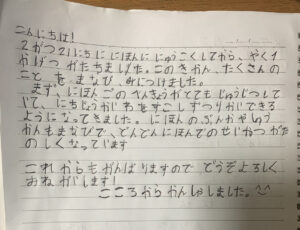 こんにちは!
2がつ21にちににほんににゅうこくしてから、やく1
かげつがたちました。このきかん、たくさんの
ことをまなび、身につけました。
まず、にほんごのべんきょうがとてもじゅうじつして
いて、にちじょうかいわをすこしずつりかいできる
ようになってきました。にほんのぶんかやしゅう
かんもまなびて、どんどんにほんでのせいかつがた
のしくなっています
これからもがんばりますのでどうぞよろしく
おねがいします!
こころからかんしゃしました。